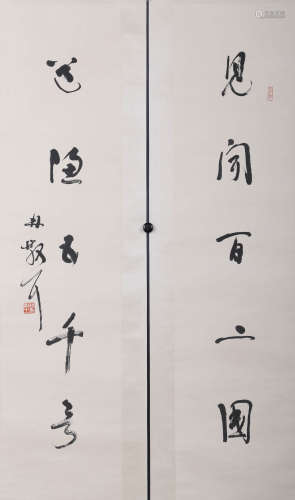 見聞百二國
道德五千言
林散耳